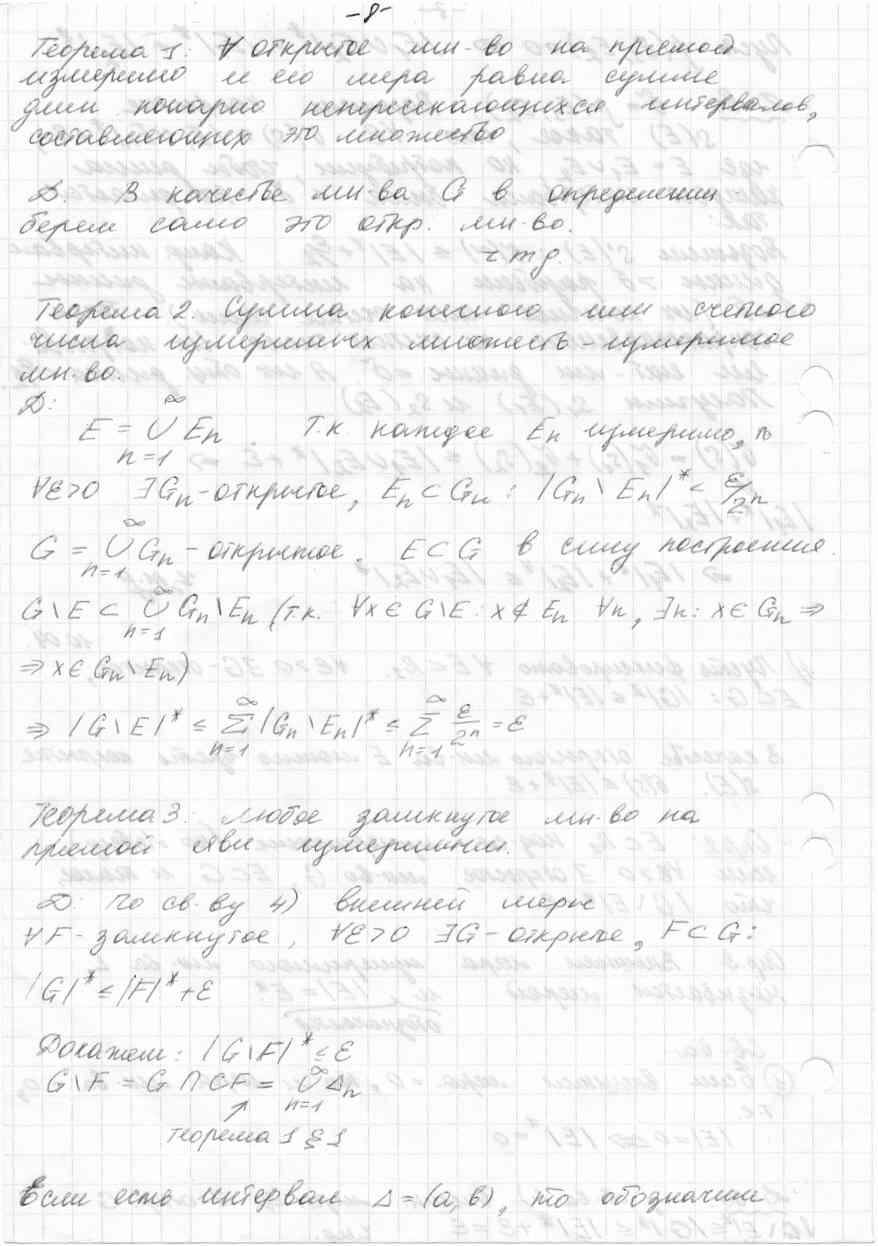 -8-
Теорема 1: ∀ открытое мн-во на прямой
измеримо и его мера равна сумме
длин попарно непересекающихся интервалов,
составляющих это множество
Д. В качестве мн-ва G в определении
берем само это откр. мн-во.
чтд.
Теорема 2. Сумма конечного или счетного
числа измеримых множеств - измеримое
мн-во.
Д:
E = ∞∪n=1 En . Т.к. каждое En измеримо, то
∀ε>0 ∃Gn-открытое, En ⊂ Gn : |Gn \ En|* < ε/2^n
G = ∞∪n=1 Gn - открытое. E⊂G в силу построения.
G\E ⊂ ∞∪n=1 Gn\En (т.к. ∀x∈G\E: x∉En ∀n, ∃n: x∈Gn ⇒
⇒ x∈Gn\En)
⇒ |G\E|* ≤ ∞∑n=1 |Gn\En|* ≤ ∞∑n=1 ε/2^n = ε
Теорема 3. Любое замкнутое мн-во на
прямой явл измеримым.
Д: По св-ву 4) внешней меры
∀F-замкнутое, ∀ε>0 ∃G-открытое, F⊂G:
|G|* ≤ |F|* + ε
Докажем: |G\F|* ≤ ε
G\F = G∩CF = ∞∪n=1 Δn
↗
теорема 1 §1
Если есть интервал Δ = (a, b), то обозначим